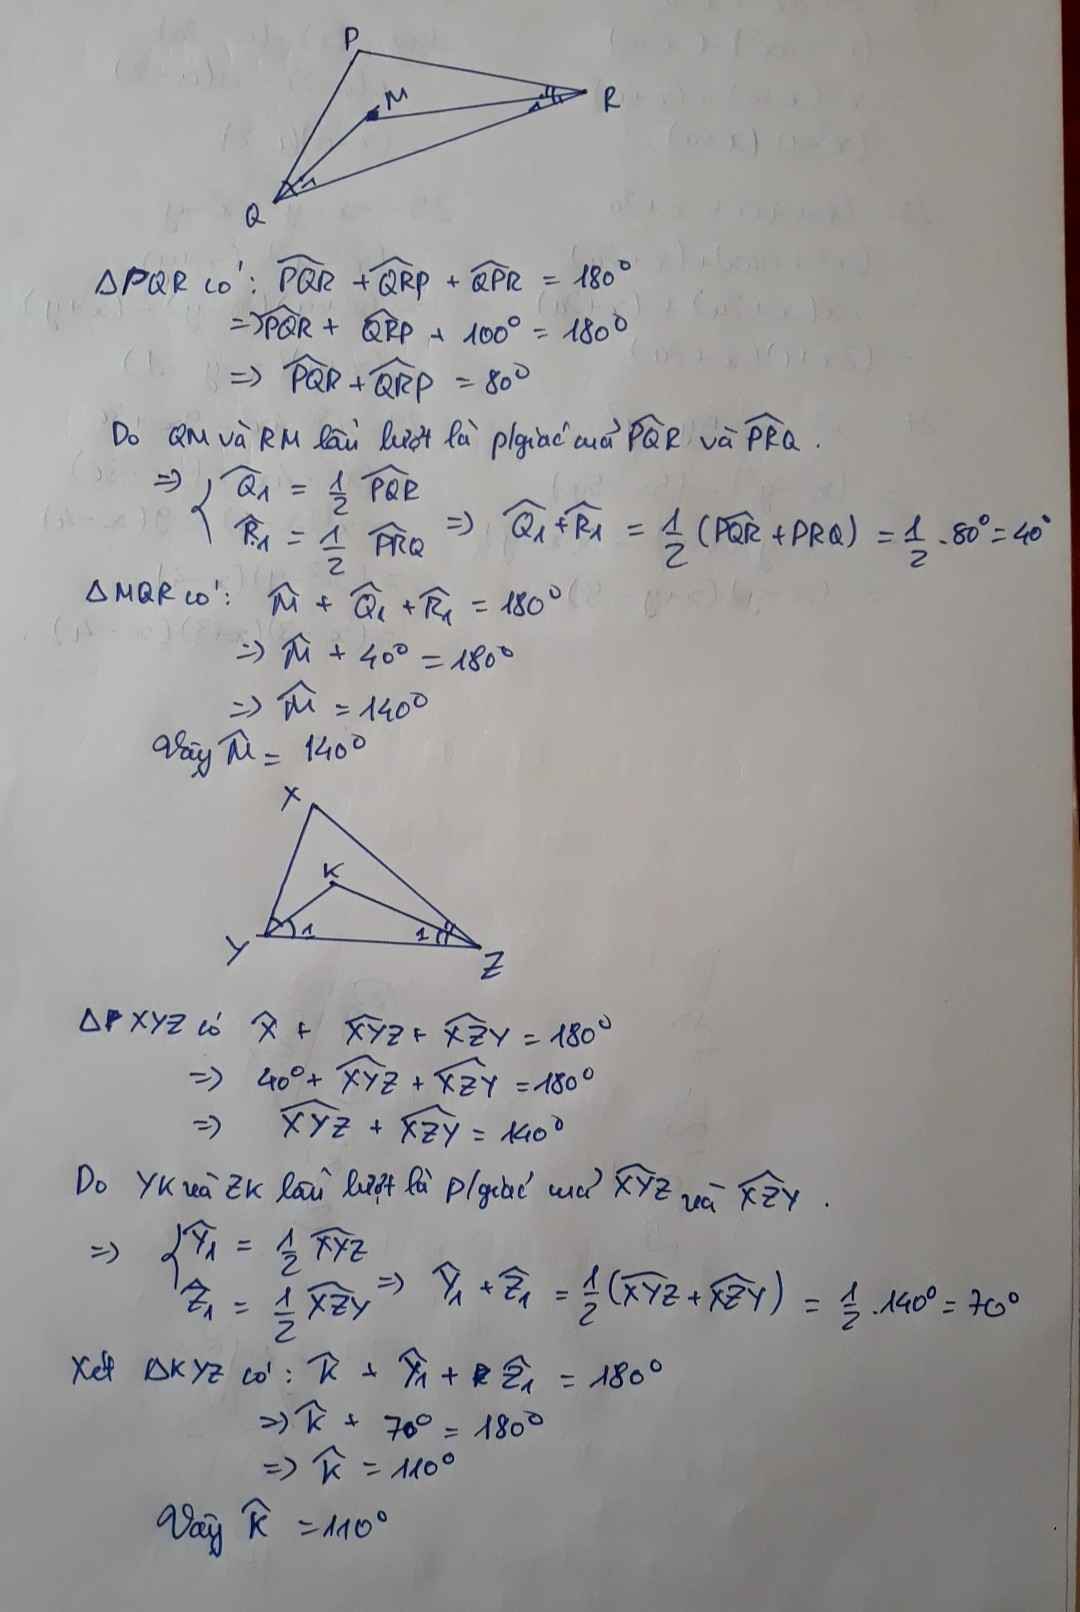 P
M
R
1
1
Q
ΔPQR có: \widehat{PQR} + \widehat{QRP} + \widehat{QPR} = 180⁰
=> \widehat{PQR} + \widehat{QRP} + 100⁰ = 180⁰
=> \widehat{PQR} + \widehat{QRP} = 80⁰
Do QM và RM lần lượt là p/giác của \widehat{PQR} và \widehat{PRQ}.
=> { \widehat{Q_1} = \frac{1}{2} \widehat{PQR}
\widehat{R_1} = \frac{1}{2} \widehat{PRQ} => \widehat{Q_1} + \widehat{R_1} = \frac{1}{2} (\widehat{PQR} + PRQ) = \frac{1}{2} . 80⁰ = 40⁰
ΔMQR có: \widehat{M} + \widehat{Q_1} + \widehat{R_1} = 180⁰
=> \widehat{M} + 40⁰ = 180⁰
=> \widehat{M} = 140⁰
Vậy \widehat{M} = 140⁰
X
K
Y
1
1
Z
Δ XYZ có \widehat{X} + \widehat{XYZ} + \widehat{XZY} = 180⁰
=> 40⁰ + \widehat{XYZ} + \widehat{XZY} = 180⁰
=> \widehat{XYZ} + \widehat{XZY} = 140⁰
Do YK và ZK lần lượt là p/giác của \widehat{XYZ} và \widehat{XZY}.
=> { \widehat{Y_1} = \frac{1}{2} \widehat{XYZ}
\widehat{Z_1} = \frac{1}{2} \widehat{XZY} => \widehat{Y_1} + \widehat{Z_1} = \frac{1}{2} (\widehat{XYZ} + \widehat{XZY}) = \frac{1}{2} . 140⁰ = 70⁰
Xét ΔKYZ có: \widehat{K} + \widehat{Y_1} + \widehat{Z_1} = 180⁰
=> \widehat{K} + 70⁰ = 180⁰
=> \widehat{K} = 110⁰
Vậy \widehat{K} = 110⁰